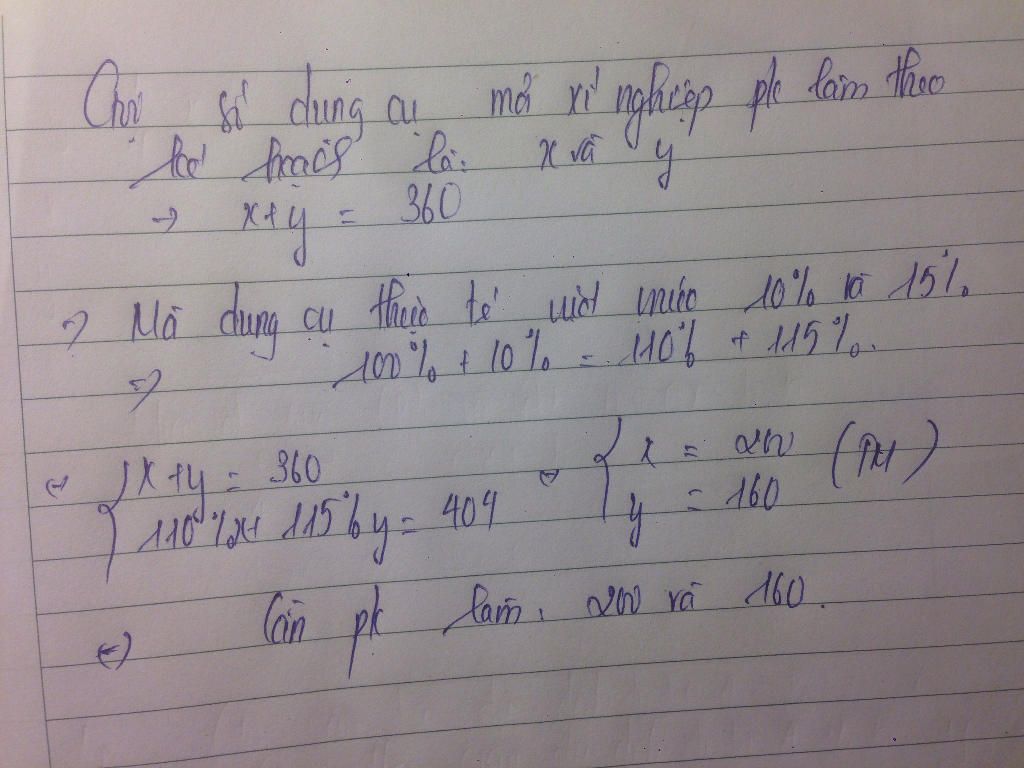 Gọi số dụng cụ mỗi xí nghiệp pk làm theo
kế hoạch là: x và y
→ x+y = 360
=> Mà dụng cụ thực tế vượt mức 10% và 15%
=> 100% + 10% = 110% + 115%.
<=> { x+y = 360 <=> { x = 200 (TM)
110%x + 115%y = 404 y = 160
<=> Cần pk làm: 200 và 160.